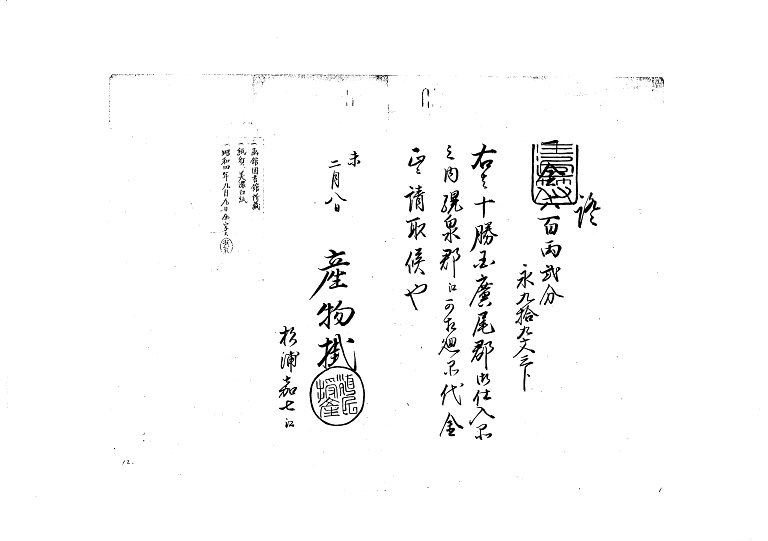 證
一金六百両弐分
永九拾九文三卜
右者十勝国廣尾郡御仕入品
之内幌泉郡江可相廻品代金
正ニ請取候也
未
二月八日
産物掛
杉浦嘉七江
一函館図書館所蔵
一紙質、美濃白紙
一昭和四年九月九日全写ス
12.